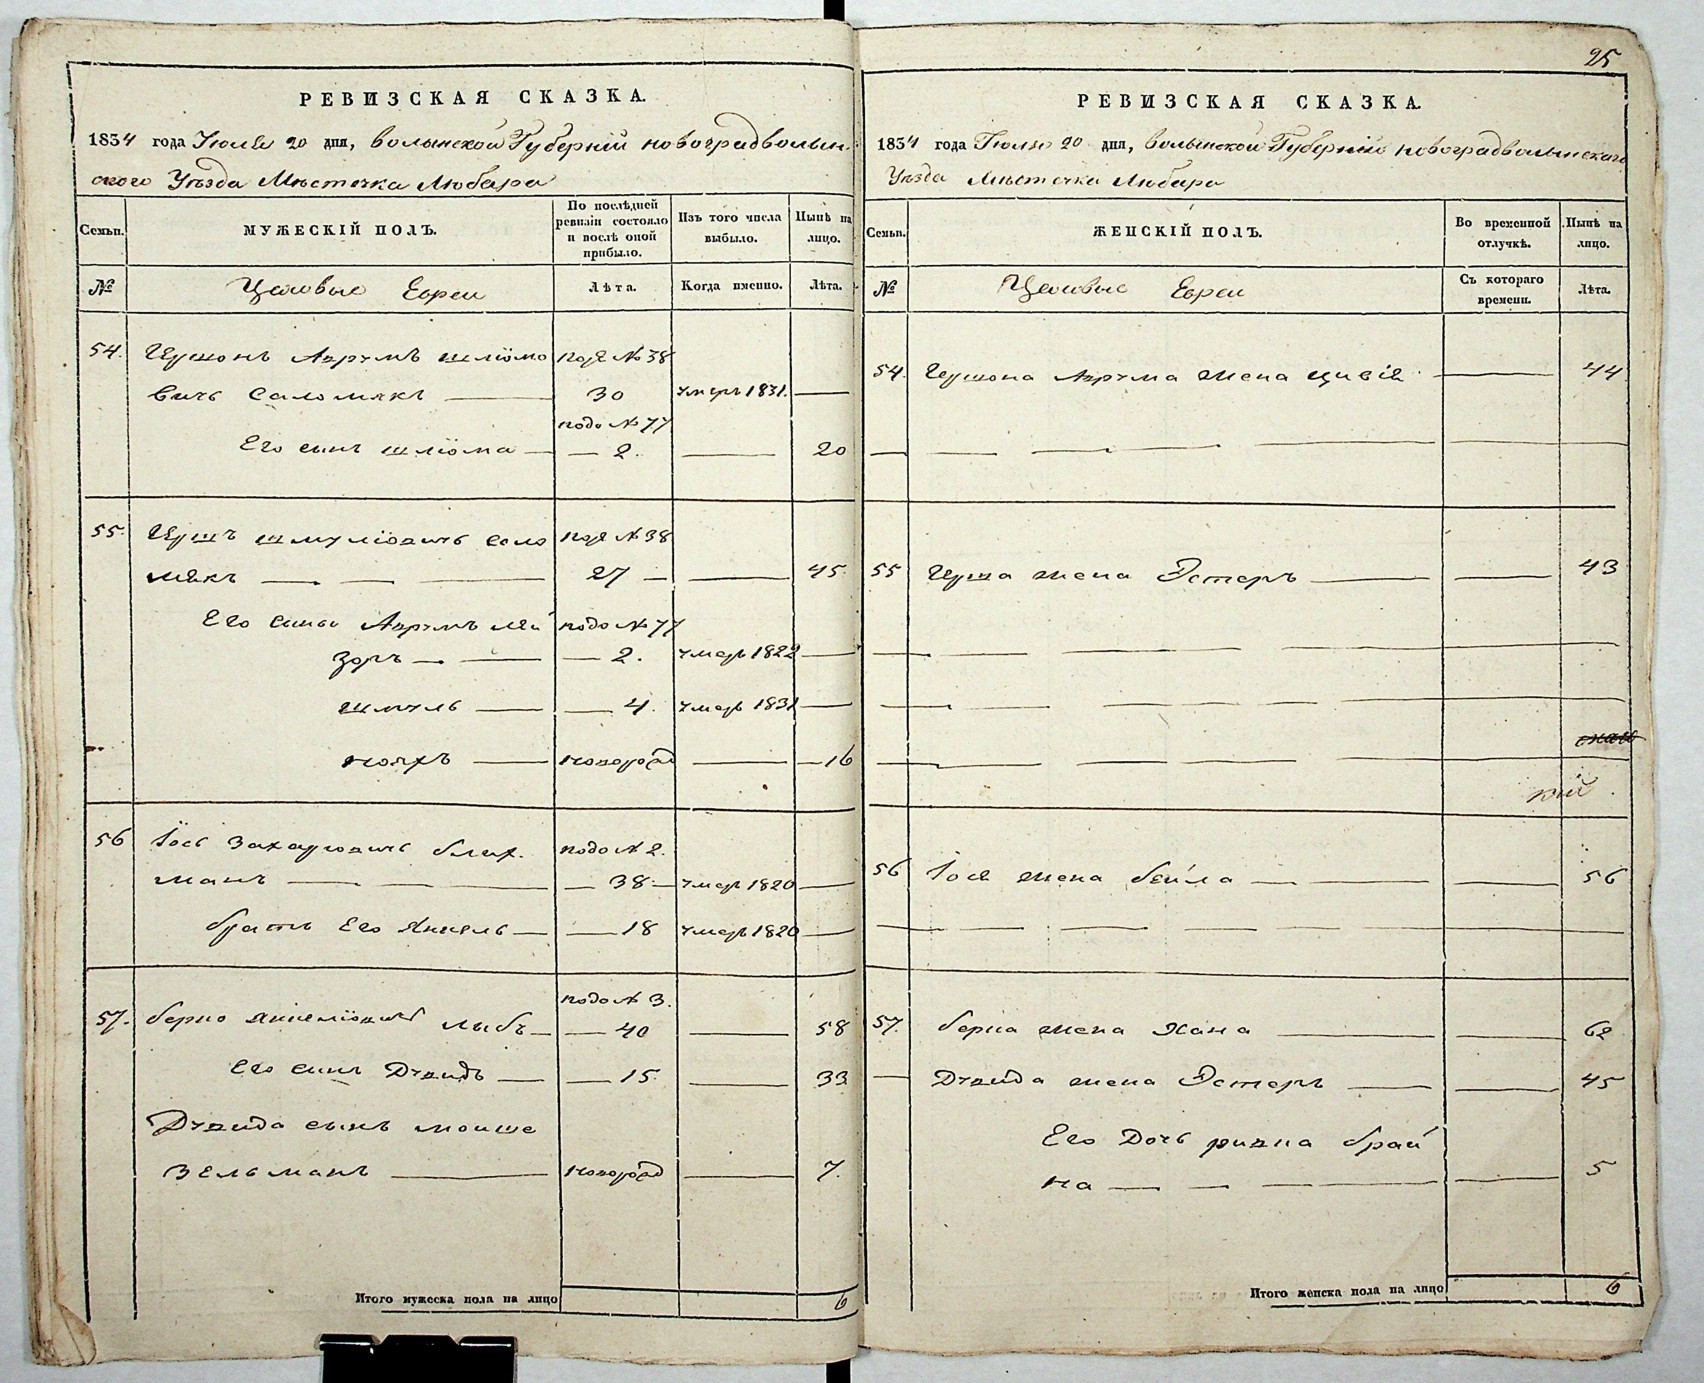 РЕВИЗСКАЯ СКАЗКА.
1834 года Июля 20 дня, волынской Губерніи новоградволын-
ского Уѣзда Мѣстечка Любара
Семьи.
МУЖЕСКІЙ ПОЛЪ.
По послѣдней ревизіи состояло и послѣ оной прибыло.
Изъ того числа выбыло.
Нынѣ на лицо.
№
Цеховые Евреи
Лѣта.
Когда именно.
Лѣта.
54. Гершонъ Аврумъ шліомо под № 38
вичъ Саломякъ 30 умеръ 1831.
подъ № 77
Его сынъ шліома 2. 20
55. Гершъ шмуліовичъ соло под № 38
мякъ 27 45
Его сыны Аврумъ лей подъ № 77
зоръ 2. умеръ 1822
шмуль 4. умеръ 1831
нояхъ новород 16
56 Іось Захаріовичъ блих- подъ № 2.
манъ 38 умеръ 1820
братъ Его Янкель 18 умеръ 1820
подъ № 3.
57. берко Янкеліовичъ 40 58
Его сынъ Дувидъ 15 33
Дувида сынъ моише
Зельманъ новород 7.
Итого мужеска пола на лицо 6
25
РЕВИЗСКАЯ СКАЗКА.
1834 года Іюля 20 дня, волынской Губерніи новоградволынскаго
Уѣзда Мѣстечка Любара
Семьи.
ЖЕНСКІЙ ПОЛЪ.
Во временной отлучкѣ.
Нынѣ на лицо.
№
Цеховые Евреи
Съ котораго времени.
Лѣта.
54. Гершона Аврума жена Цивія 44
55 Герша жена Эстеръ 43
56 Іося жена бейла 56
57. берка жена Хана 62
Дувида жена Эстеръ 45
Его Дочь ривка брай
на 5
Итого женска пола на лицо 6